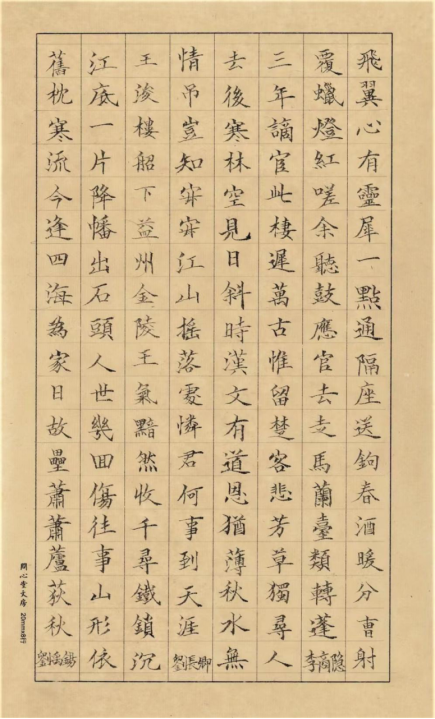 飛翼心有靈犀一點通隔座送鉤春酒暖分曹射
覆蠟燈紅嗟余聽鼓應官去走馬蘭臺類轉蓬李商隐
三年謫宦此棲遲萬古惟留楚客悲芳草獨尋人
去後寒林空見日斜時漢文有道恩猶薄秋水無
情吊豈知寂寂江山摇落處憐君何事到天涯劉長卿
王浚樓船下益州金陵王氣黯然收千尋鐵鎖沉
江底一片降幡出石頭人世幾回傷往事山形依
舊枕寒流今逢四海為家日故壘蕭蕭蘆荻秋劉禹錫